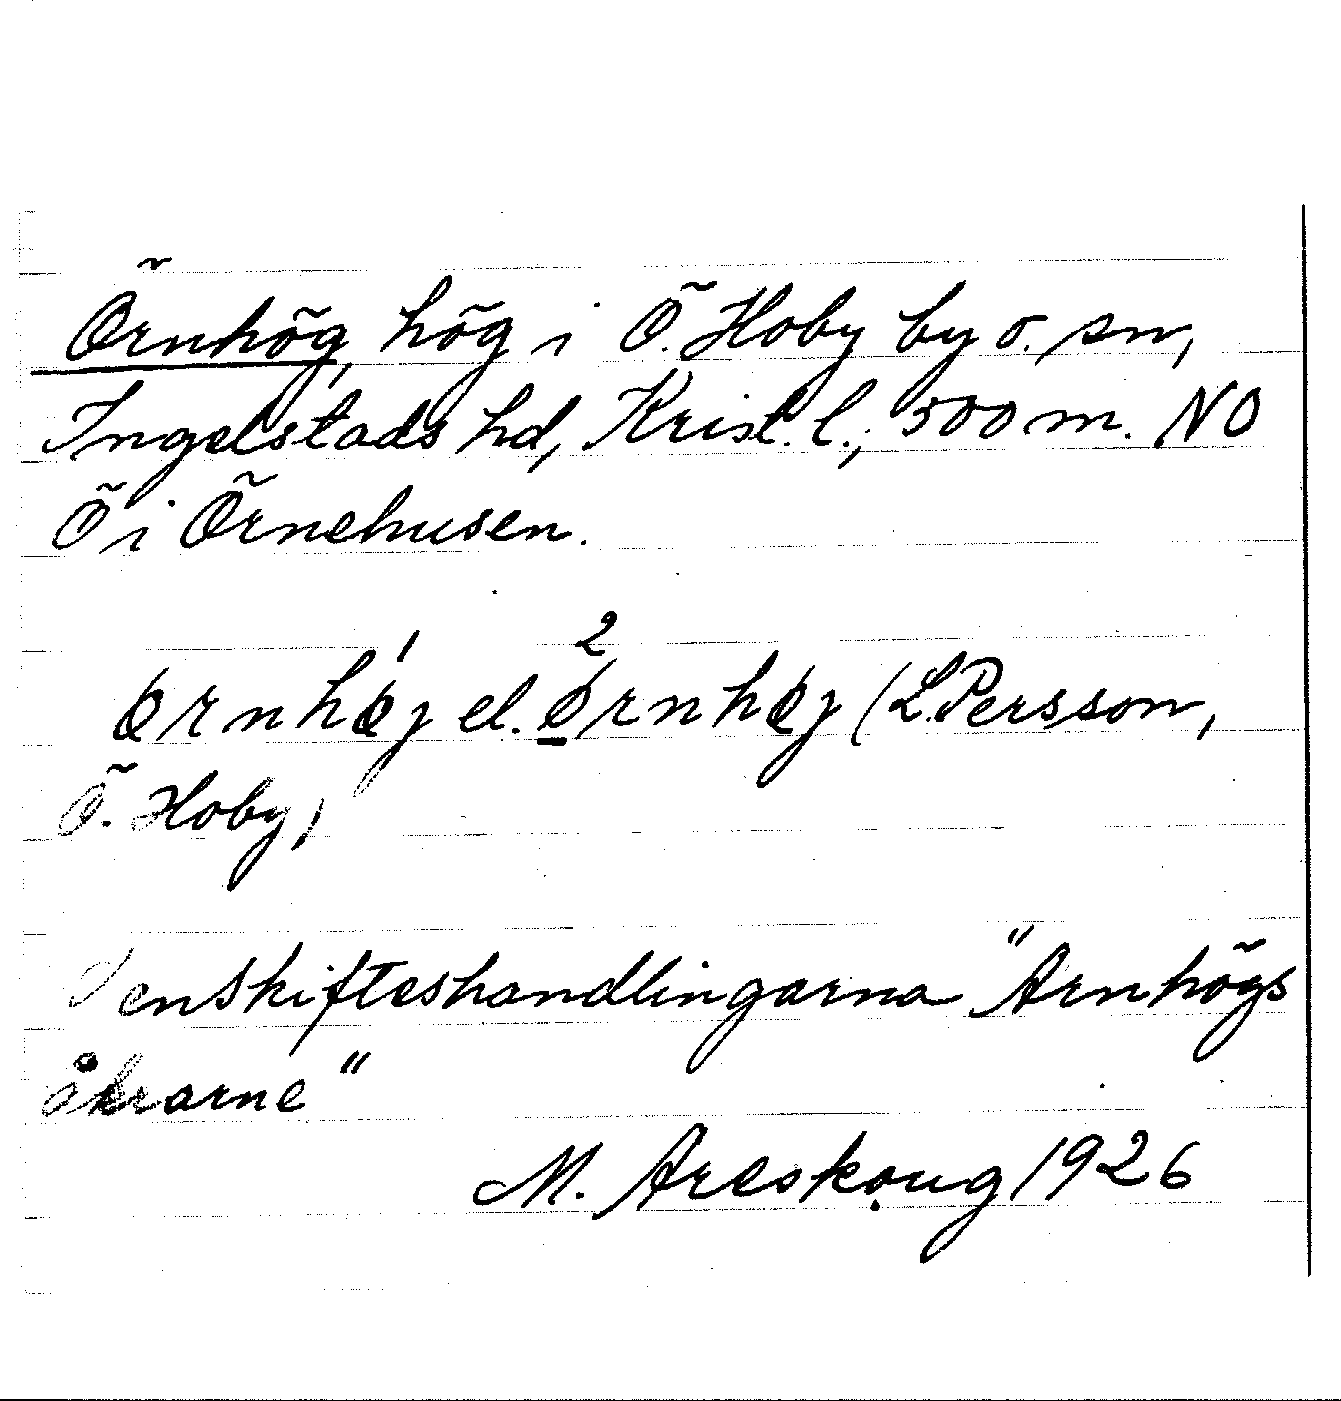 Örnhög, hög i Ö. Hoby by o. sn,
Ingelstads hd, Krist. l., 500 m. NO
Ö i Örnehusen.
ørnhǿj el. ø²rnhøj (L. Persson,
Ö. Hoby)
enskifteshandlingarna "Arnhögs
åkrarne"
M. Areskoug 1926